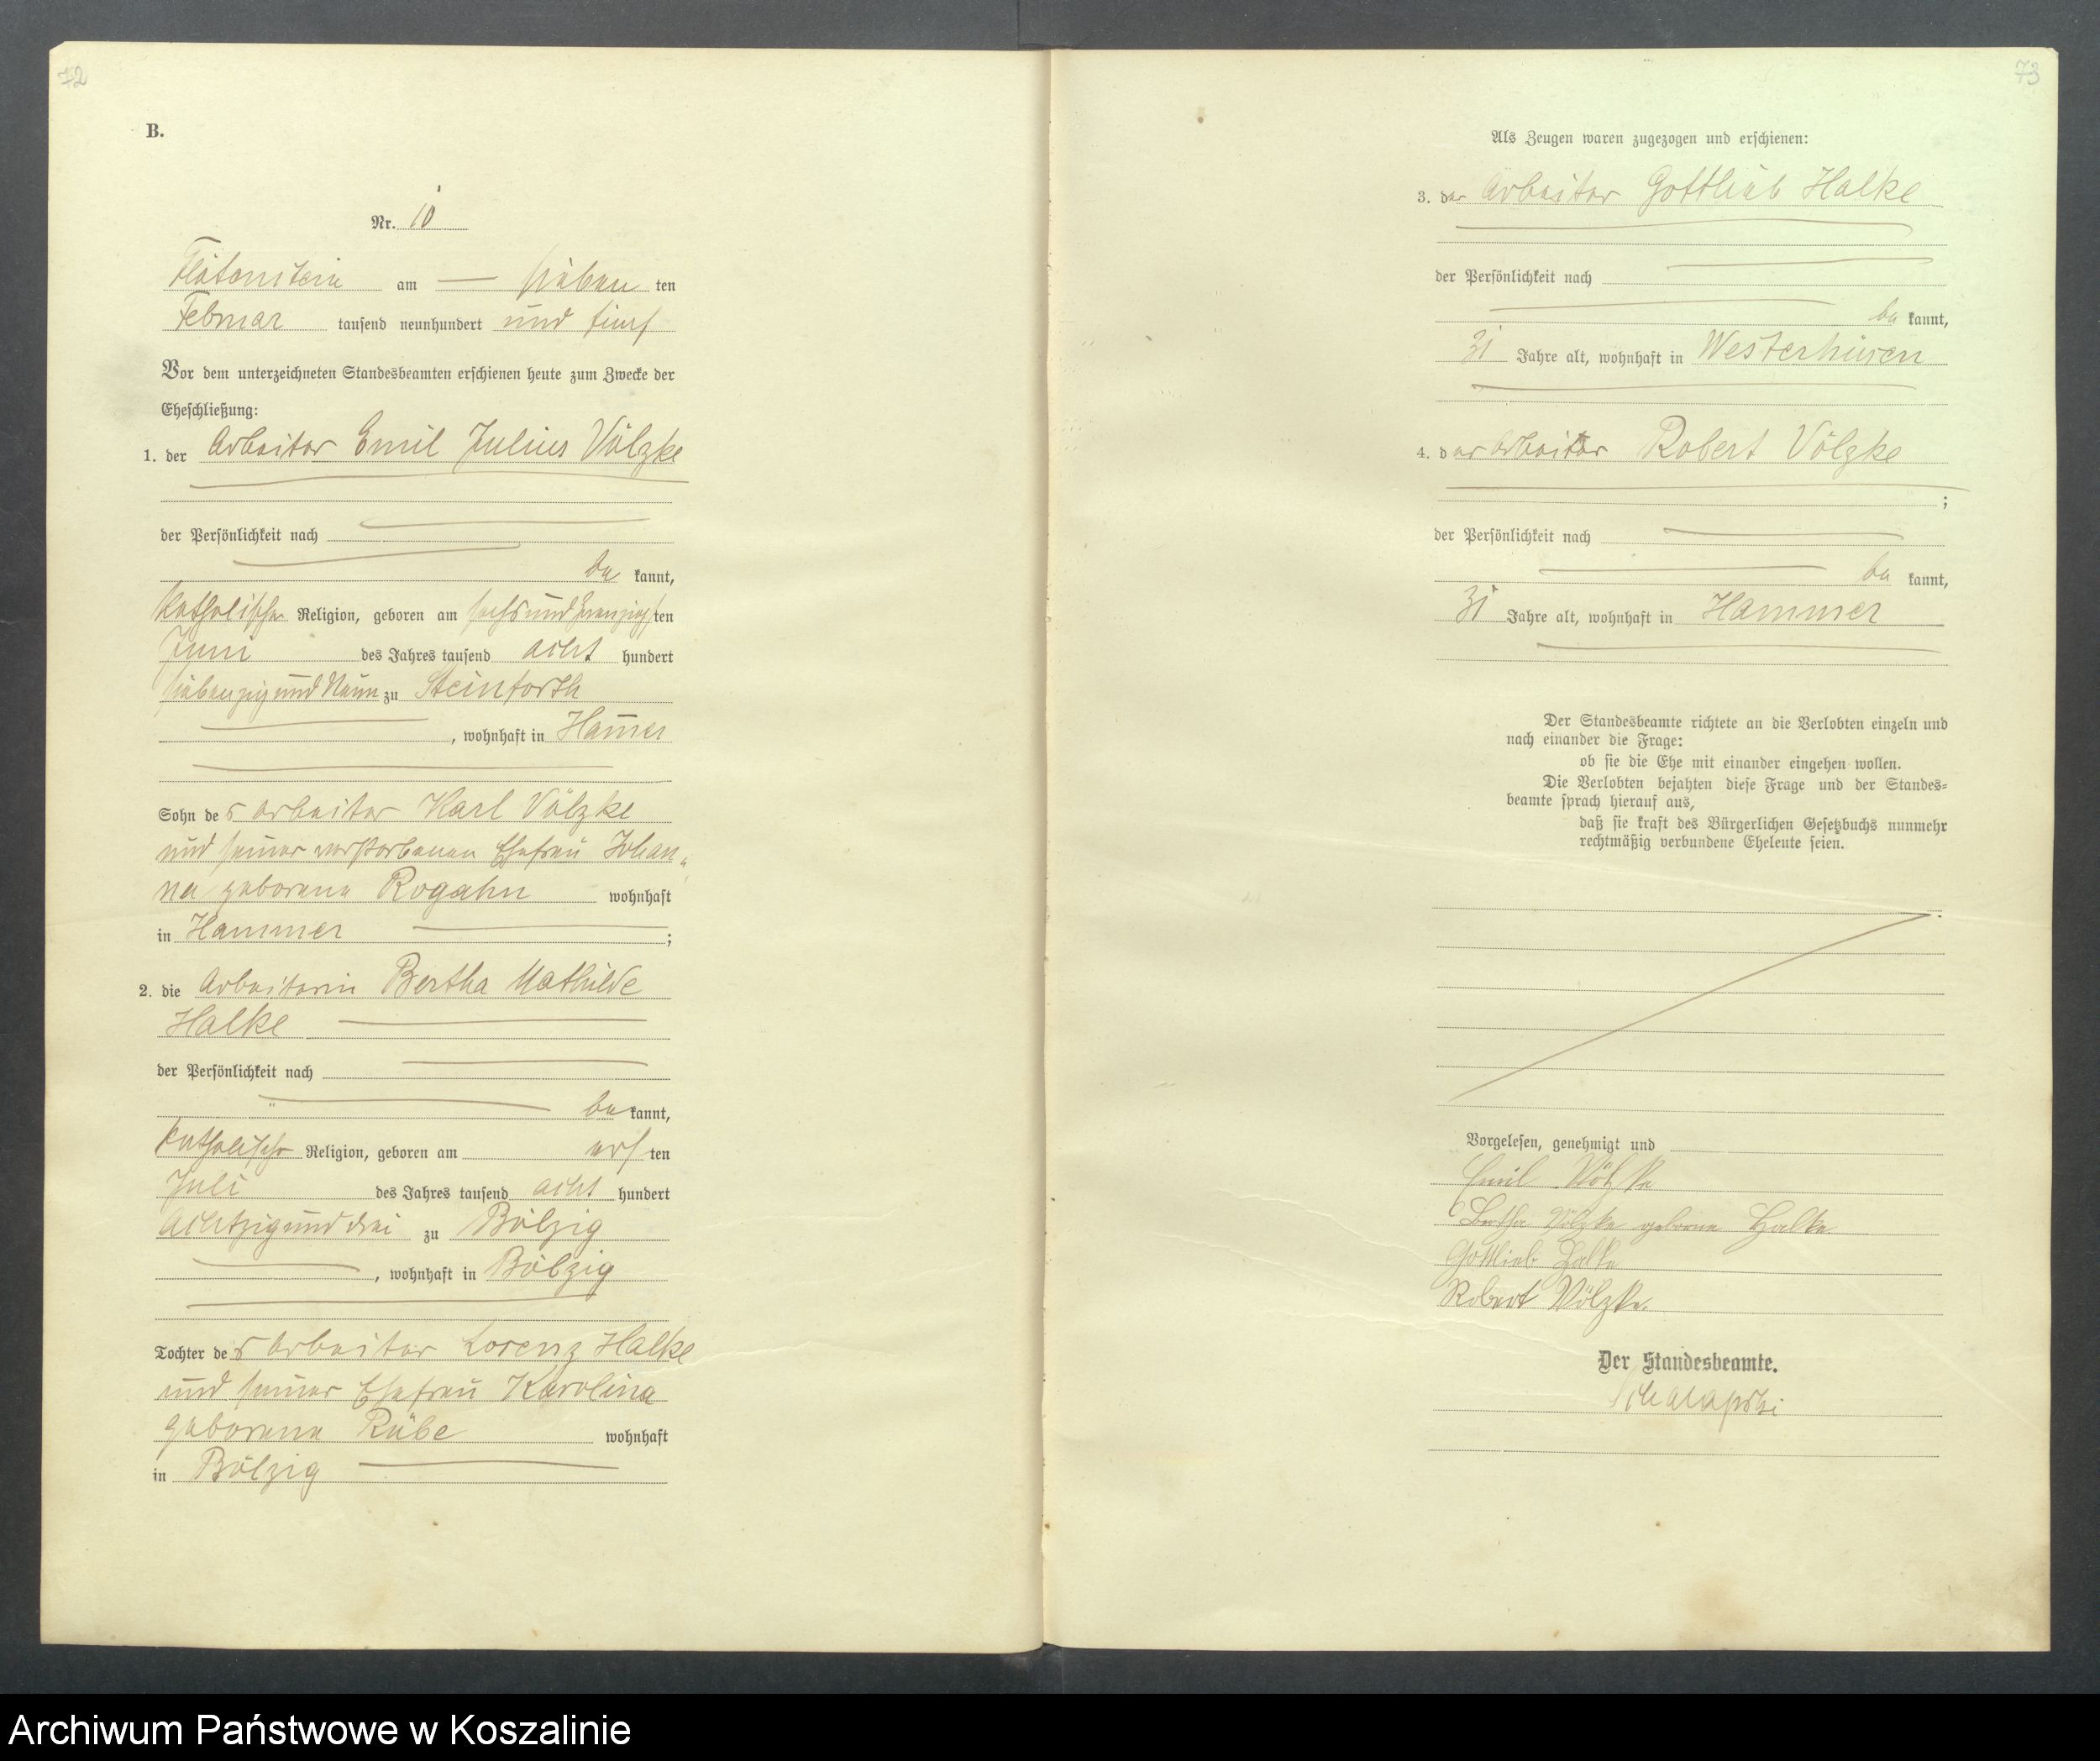 72
B.
Nr. 10
Flötenstein am — sieben ten
Februar tausend neunhundert und fünf
Vor dem unterzeichneten Standesbeamten erschienen heute zum Zwecke der
Eheschließung:
1. der Arbeiter Emil Julius Völzke
der Persönlichkeit nach
be kannt,
katholischer Religion, geboren am sechsundzwanzigsten
Juni des Jahres tausend acht hundert
siebenzig und Neun zu Steinforth
, wohnhaft in Hammer
Sohn des Arbeiter Karl Völzke
und seiner verstorbenen Ehefrau Johan-
na geborene Rogahn wohnhaft
in Hammer ;
2. die Arbeiterin Bertha Mathilde
Halke
der Persönlichkeit nach
be kannt,
katholischer Religion, geboren am ersten
Juli des Jahres tausend acht hundert
achtzig und drei zu Bölzig
, wohnhaft in Bölzig
Tochter des Arbeiter Lorenz Halke
und seiner Ehefrau Karolina
geborene Rübe wohnhaft
in Bölzig
73
Als Zeugen waren zugezogen und erschienen:
3. der Arbeiter Gottlieb Halke
der Persönlichkeit nach
be kannt,
31 Jahre alt, wohnhaft in Westerhüsen
4. der Arbeiter Robert Völzke
;
der Persönlichkeit nach
be kannt,
31 Jahre alt, wohnhaft in Hammer
Der Standesbeamte richtete an die Verlobten einzeln und
nach einander die Frage:
ob sie die Ehe mit einander eingehen wollen.
Die Verlobten bejahten diese Frage und der Standes-
beamte sprach hierauf aus,
daß sie kraft des Bürgerlichen Gesetzbuchs nunmehr
rechtmäßig verbundene Eheleute seien.
Vorgelesen, genehmigt und
Emil Völzke
Bertha Völzke geborne Halke
Gottlieb Halke
Robert Völzke.
Der Standesbeamte.
Archiwum Państwowe w Koszalinie